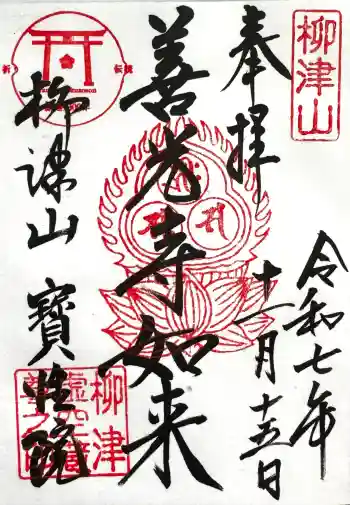 柳津山
奉拝
令和七年
十一月十五日
善光寺如来
柳津山 寶性院
柳津
虚空蔵